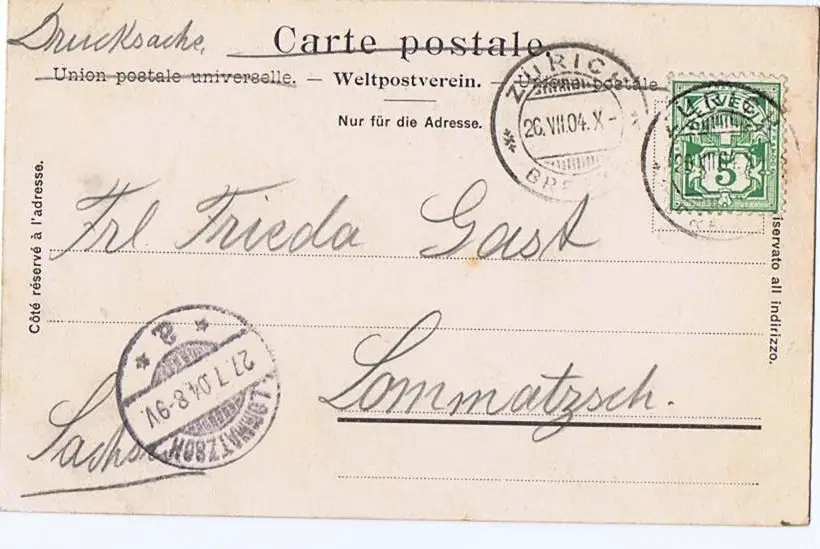 Drucksache.
Carte postale.
Union postale universelle. — Weltpostverein. — postale
Nur für die Adresse.
ZÜRICH
26.VII.04.X-
HELVETIA
5
Côté réservé à l'adresse.
riservato all indirizzo.
Frl Frieda Gast
Lommatzsch.
27.7.04.8-9V.
LOMMATZSCH
Sachsen